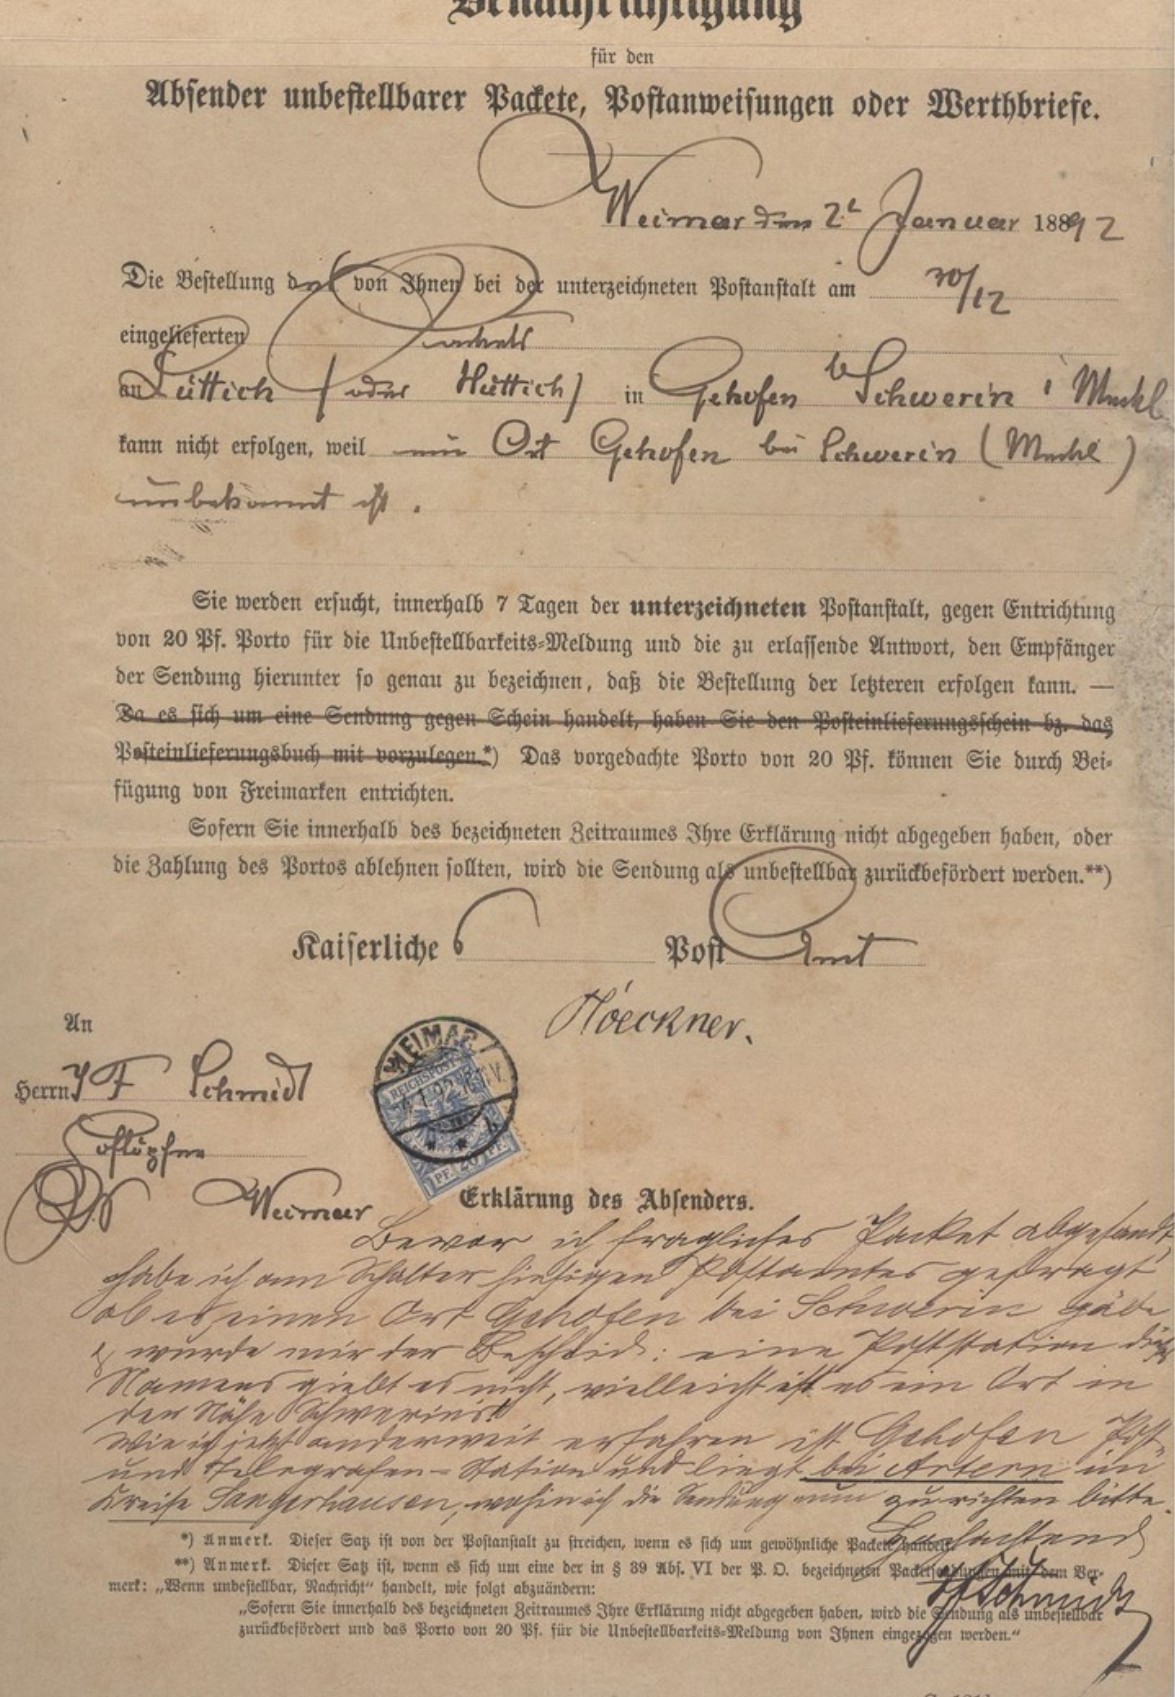 Benachrichtigung
für den
Absender unbestellbarer Packete, Postanweisungen oder Werthbriefe.
Weimar den 2t Januar 1892
Die Bestellung des von Ihnen bei der unterzeichneten Postanstalt am 30/12
eingelieferten Packets
an Lüttich (oder Hüttich) in Gehofen b Schwerin i Meckl
kann nicht erfolgen, weil ein Ort Gehofen bei Schwerin (Meckl)
unbekannt ist.
Sie werden ersucht, innerhalb 7 Tagen der unterzeichneten Postanstalt, gegen Entrichtung
von 20 Pf. Porto für die Unbestellbarkeits-Meldung und die zu erlassende Antwort, den Empfänger
der Sendung hierunter so genau zu bezeichnen, daß die Bestellung der letzteren erfolgen kann. —
Da es sich um eine Sendung gegen Schein handelt, haben Sie den Posteinlieferungsschein bz. das
Posteinlieferungsbuch mit vorzulegen.*) Das vorgedachte Porto von 20 Pf. können Sie durch Bei-
fügung von Freimarken entrichten.
Sofern Sie innerhalb des bezeichneten Zeitraumes Ihre Erklärung nicht abgegeben haben, oder
die Zahlung des Portos ablehnen sollten, wird die Sendung als unbestellbar zurückbefördert werden.**)
Kaiserliche Post Amt
An
Herrn J F Schmidt
Weimar
WEIMAR
REICHSPOST
1.92
PF. 20 PF.
Erklärung des Absenders.
Bevor ich fragliches Packet abgesandt,
habe ich am Schalter hiesigen Postamtes gefragt
ob es einen Ort Gehofen bei Schwerin gäbe
& wurde mir der Bescheid: eine Poststation dieses
Namens giebt es nicht, vielleicht ist es ein Ort in
der Nähe Schwerins.
Wie ich jetzt anderweit erfahren ist Gehofen Post-
und Telegrafen-Station und liegt bei Artern im
Kreise Sangerhausen, wohin ich die Sendung nun zu richten bitte.
Hochachtend
JF Schmidt
*) Anmerk. Dieser Satz ist von der Postanstalt zu streichen, wenn es sich um gewöhnliche Packete handelt.
**) Anmerk. Dieser Satz ist, wenn es sich um eine der in § 39 Abs. VI der P. O. bezeichneten Packetsendungen mit dem Ver-
merk: „Wenn unbestellbar, Nachricht“ handelt, wie folgt abzuändern:
„Sofern Sie innerhalb des bezeichneten Zeitraumes Ihre Erklärung nicht abgegeben haben, wird die Sendung als unbestellbar
zurückbefördert und das Porto von 20 Pf. für die Unbestellbarkeits-Meldung von Ihnen eingezogen werden.“